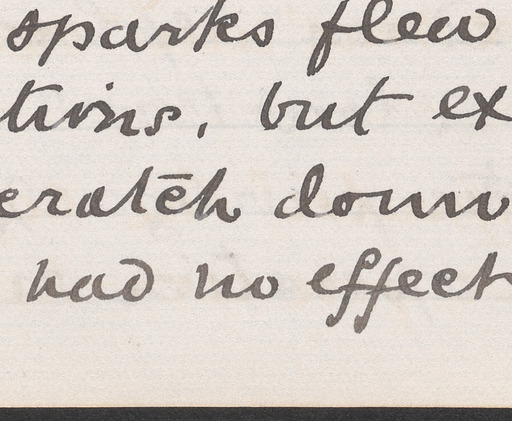 sparks flew
tions, but ex
cratch down
had no effect